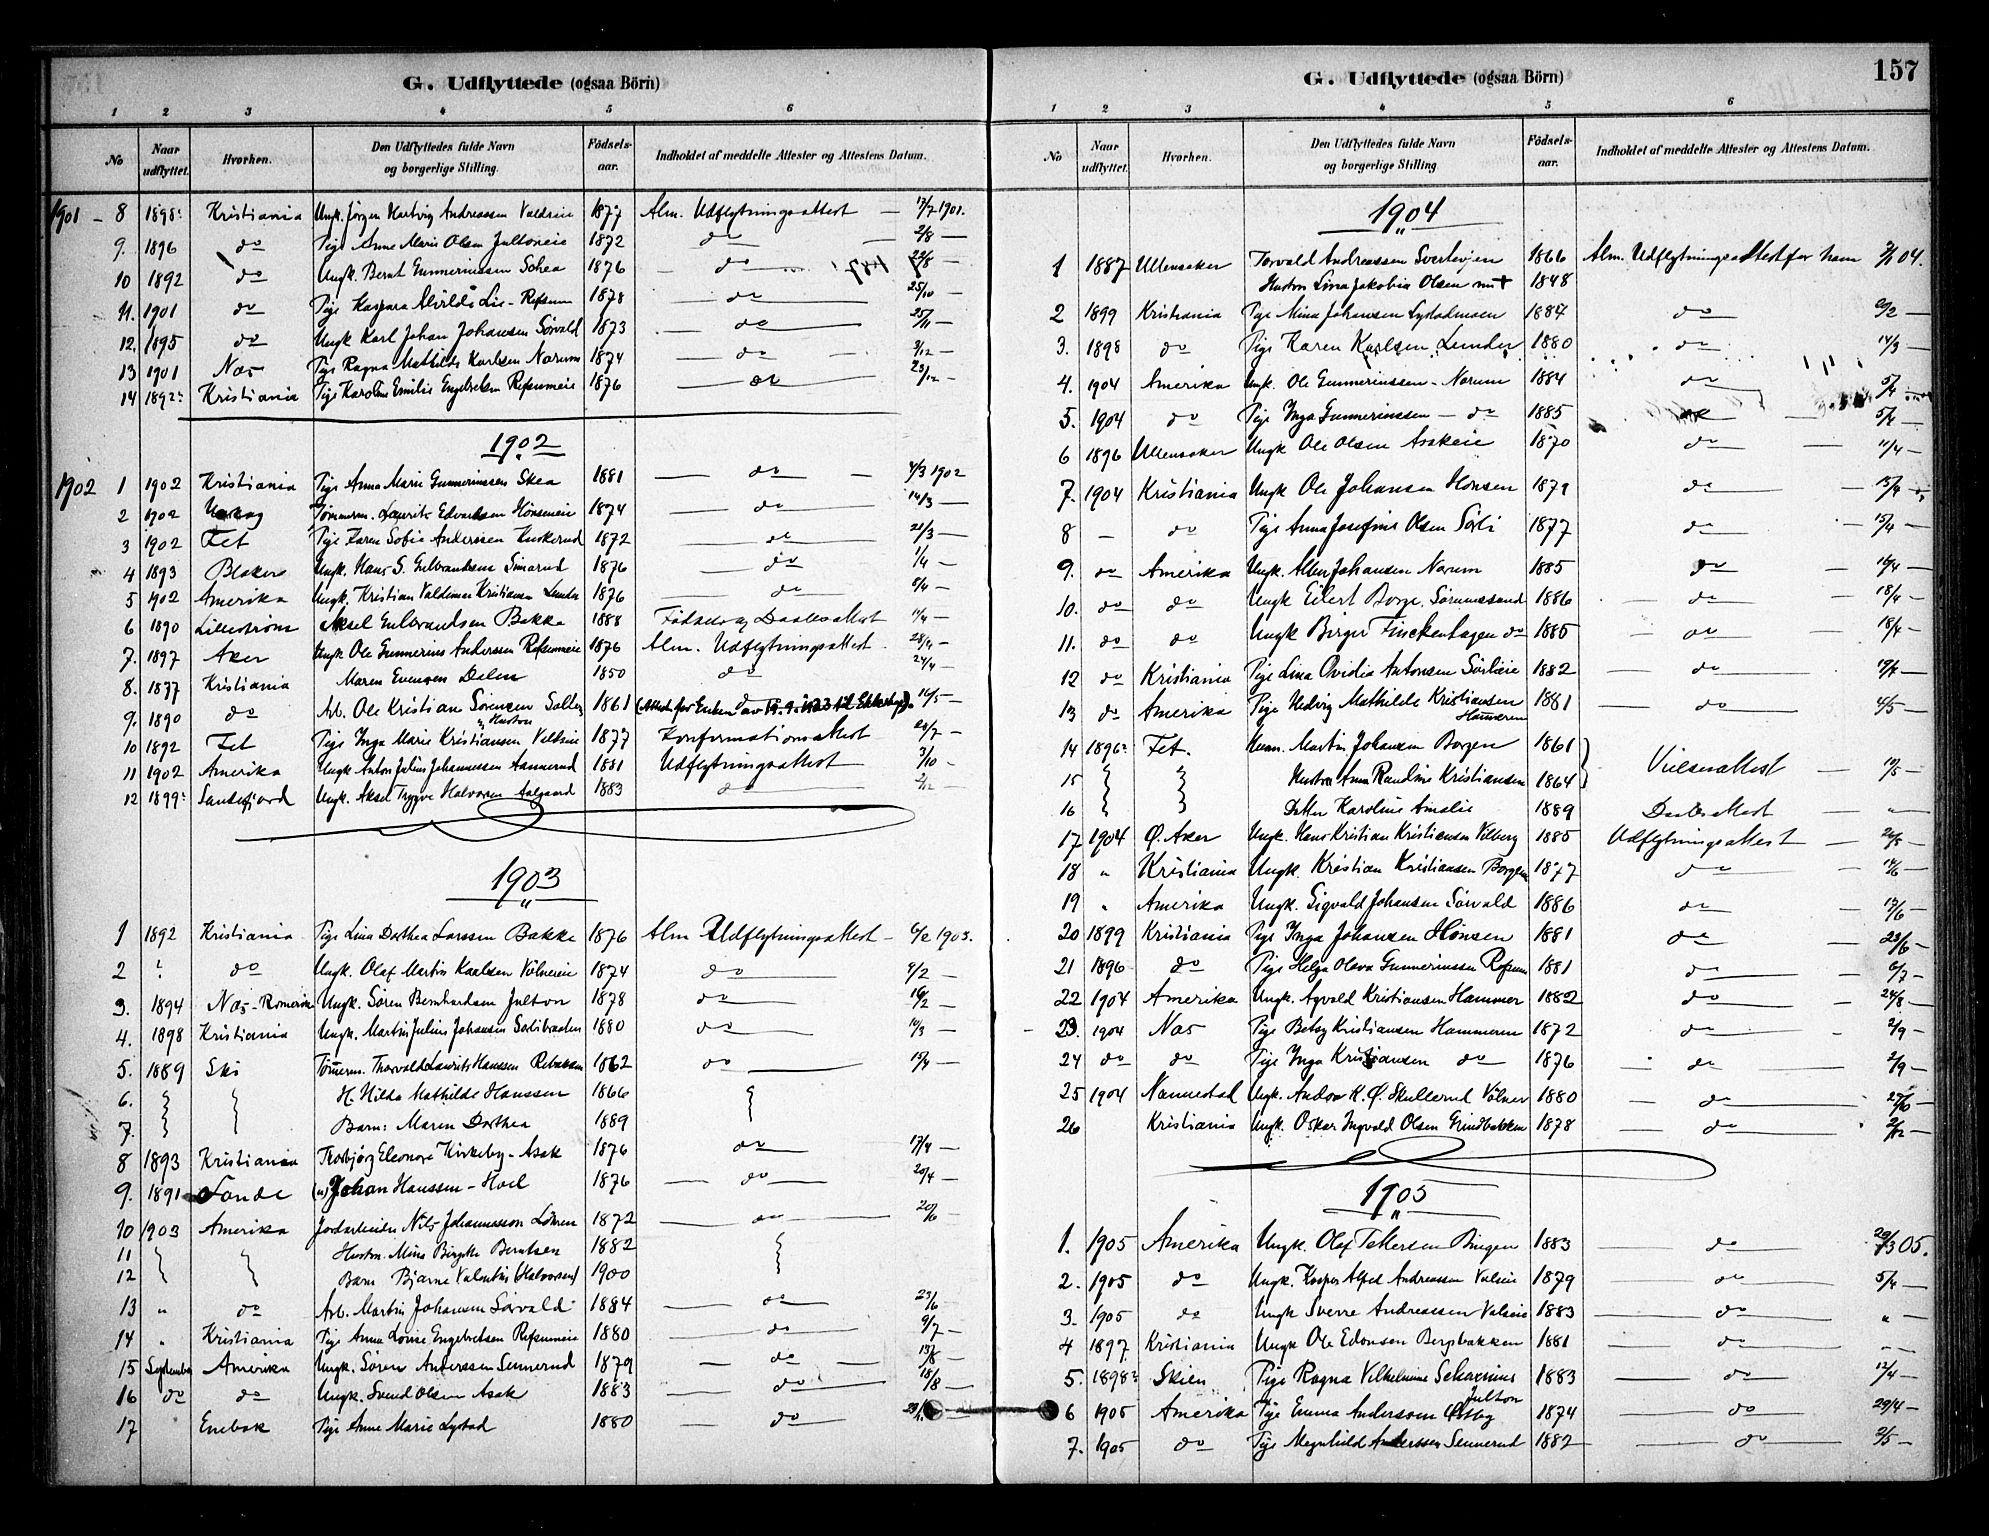 G. Udflyttede (ogsaa Börn)
1 2 3 4 5 6
No Naar udflyttet. Hvorhen. Den Udflyttedes fulde Navn og borgerlige Stilling. Födsels-aar. Indholdet af meddelte Attester og Attestens Datum.
1901 – 8 1898 Kristiania Ungk. Jörgen Hartvig Andreassen Valdseie 1877 Alm. Udflytningsattest — 17/7 1901.
9. 1896 do Pige Anne Marie Olsen Jultoneie 1872 do — 2/8 —
10 1892 do Ungk. Bernt Gunneriussen 1876 — do
11. 1901 do Pige Kaspara Alvilde Lie - Refsum 1878 — do — 25/10 —
12. 1895 do Ungk Karl Johan Johansen Sörvald 1873 — do — 25/11 —
13 1901 Næs Pige Ragna Mathilde Karlsen Narum 1874 — do — 3/12 —
14 1892 Kristiania Pige Karoline Emilie Engebretsen Refsumeie 1876 — do — 23/12 —
1902
1902 1 1902 Kristiania Pige Anna Marie Gunneriussen Skea 1881 — do — 4/3 1902
2 1902 Tömmerm. Laurits Edvardsen Hönseneie 1874 — do — 14/3 —
3 1902 Fet Pige Karen Sofie Anderssen Huskerud 1872 — do — 21/3 —
4 1893 Blaker Ungk. Hans S. Gulbrandsen Simarud 1876 — do — 1/4 —
5 1902 Amerika Ungk. Kristian Valdemar Kristiansen Lunder 1876 — do — 5/4 —
6 1890 Lilleström Aksel Gulbrandsen Bakke 1888 Födsels og Daabsattest 11/4 —
7. 1897 Aker Ungk Ole Gunnerius Anderssen Refsumeie 1876 Alm. Udflytningsattest 28/4 —
8. 1877 Kristiania Maren Evensen Dalen 1850 do 24/4 —
9. 1890 do Arb. Ole Kristian Sörensen 1861 (Attest for Enken av 19.9.1923 til Ekkersberg) 16/5 —
" Hustru
10 1892 Fet Pige Inga Marie Kristiansen Valdseie 1877 Konformationsattest 24/7 —
11 1902 Amerika Ungk Anton Julius Johannessen Aamnerud 1881 Udflytningsattest 3/10 —
12 1899 Sandefjord Ungk. Aksel Trygve Halvorsen Aalgaard 1883 do — 2/12 —
1903
1 1892 Kristiania Pige Lina Dorthea Larssen Bakke 1876 Alm Udflytningsattest — 6/2 1903.
2 ? do Ungk. Olaf Martin Karlsen Völnereie 1874 do — 9/2 —
3. 1894 Næs - Romerike Ungk. Sören Bernhardsen Julton 1878 do — 16/2 —
4. 1898 Kristiania Ungk. Martin Julius Johansen Sörlibraaten 1880 do — 14/3 —
5. 1889 Ski Tömmerm. Thorvald Laurits Hanssen Rebakken 1862 do — 15/4 —
6. H. Hilda Mathilde Hanssen 1866
7. Barn: Maren Dorthea 1889
8 1893 Kristiania Thorbjørg Eleonore Kirkeby - Asak 1876 do — 17/4 —
9. 1891 Sande (u) Johan Hanssen - Hoel 1876 — do — 20/4 —
10 1903 Amerika Jordarbeider Nils Johannesson Löhren 1872 — do — 20/6 —
11 Hustru Mina Birgitte Berntsen 1882
12 Barn Bjarne Valentin (Halvorsen) 1900
13 " do Arb. Martin Johansen Sörvald 1884 — do — 23/6 —
14 " Kristiania Pige Anna Louise Engebretsen Refsumeie 1880 — do — 9/7 —
15 September Amerika Ungk. Sören Anderssen Sennerud 1879 — do — 13/8 —
16 do do Ungk. Svend Olsen Asak 1883 — do — 18/8 —
17 Enebak Pige Anne Marie Lystad 1880 — do —
G. Udflyttede (ogsaa Börn) 157
1 2 3 4 5 6
No Naar udflyttet. Hvorhen. Den Udflyttedes fulde Navn og borgerlige Stilling Födsels-aar. Indholdet af meddelte Attester og Attestens Datum.
1904
1 1887 Ullensaker Torvald Andreassen 1866 Alm. Udflytningsattest for ham 04.
Hustru Lina Jakobia Olsen 1848
2 1899 Kristiania Pige Mina Johansen Lystadmoen 1884 do 29/2 —
3. 1898 do Pige Karen Karlsen Lunder 1880 do 14/3 —
4. 1904 Amerika Ungk. Ole Gunneriussen - Narum 1884 do 5/4 —
5. 1904 do Pige Inga Gunneriussen — do 1885 do — 5/4 —
6 1896 Ullensaker Ungk Ole Olsen Asakeie 1870 do — 11/4 —
7. 1904 Kristiania Ungk Ole Johansen Hönsen 1879 do — 15/4
8 — do Pige Anna Josefine Olsen Sörli 1877 do — 15/4 —
9. do Amerika Ungk. Albin Johansen Narum 1885 do — 16/4 —
10. do do Ungk Eilert Borge. Sörumssand 1886 — do — 18/4 —
11. do do Ungk Birger Finckenhagen do 1885 — do — 18/4 —
12 do Kristiania Pige Lina Ovidia Antonsen Sörlieie 1882 — do — 19/4 —
13 do Amerika Pige Hedvig Mathilde Kristiansen Hammeren 1881 — do — 4/5 —
14 1896 Fet. Martin Johansen Borgen 1861 Vielsesattest — 10/5 —
15 Hustru Anna Randine Kristiansen 1864
16 Datter Karoline Amalie 1889 Daabsattest — " —
17 1904 Ø. Aker Ungk. Hans Kristian Kristiansen Vilberg 1885 Udflytningsattest — 26/5 —
18 " Kristiania Ungk. Kristian Kristiansen Borgen 1877 do — 14/6 —
19 " Amerika Ungk. Sigvald Johansen Sörvald 1886 do — 17/6 —
20 1899 Kristiania Pige Inga Johansen Hönsen 1881 do — 23/6 —
21 1896 do Pige Helga Olava Gunneriussen Refsum 1881 do — 6/7 —
22 1904 Amerika Ungk. Agvald Kristiansen Hammer 1882 do — 24/8 —
23. 1904 Næs Pige Betsy Kristiansen Hammeren 1872 do — 2/9 —
24 do do Pige Inga Kristiansen do 1876 — do — 2/9 —
25 1904 Nannestad Ungk. Andor K. Ø. Skullerud Völner 1880 — do — 27/10 —
26 Kristiania Ungk. Oskar Ingvald Olsen Grindbakken 1878 — do — 2/12 —
1905
1. 1905 Amerika Ungk. Olaf Tellersen Bingen 1883 — do — 20/3 05.
2. 1905 do Ungk. Kasper Alfred Andreassen Valseie 1879 do — 5/4 —
3. 1905 do Ungk Sverre Andreassen Valseie 1883 do — " —
4 1897 Kristiania Ungk Ole Edonsen Bergsbakken 1881 — do — " —
5. 1898 Skien Pige Ragna Vilhelmine Schavnius 1883 do — 12/4 —
6 1905 Amerika Pige Emma Anderssen Østby Julton 1874 — do — 29/4 —
7. 1905 do Pige Magnhild Anderssen Sennerud 1882 — do — 2/5 —